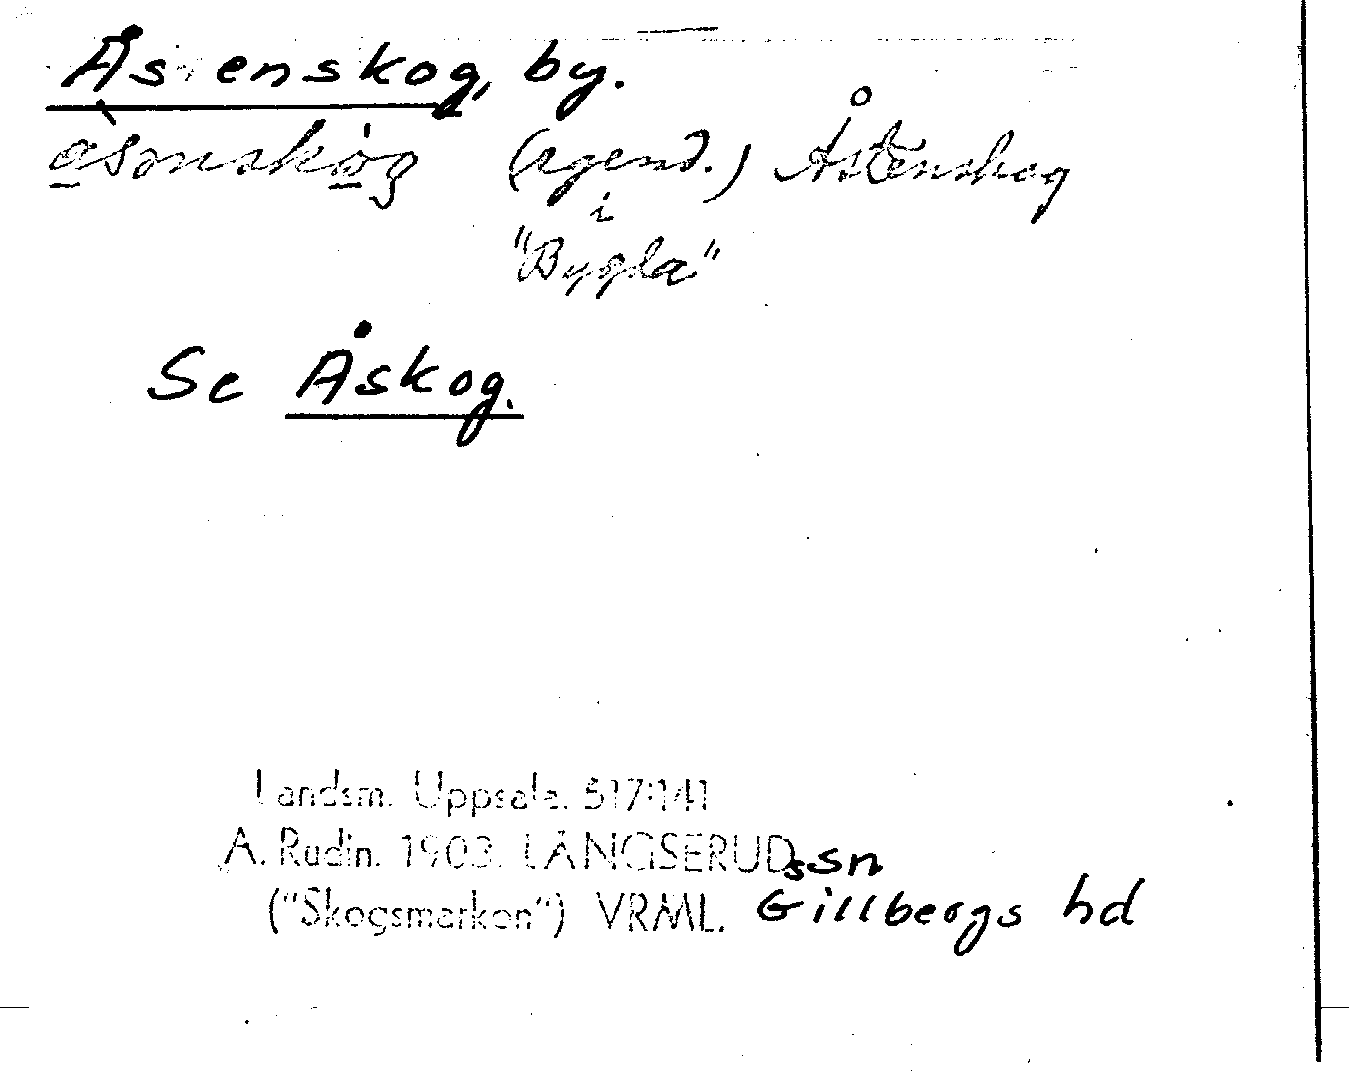 Åsenskog, by.
åsonskog (egend.) Åstenskog
i
"Bygda"
Se Åskog.
Landsm. Uppsala. 517:141
A. Rudin. 1903. LÅNGSERUDssn
("Skogsmarken") VRML. Gillbergs hd